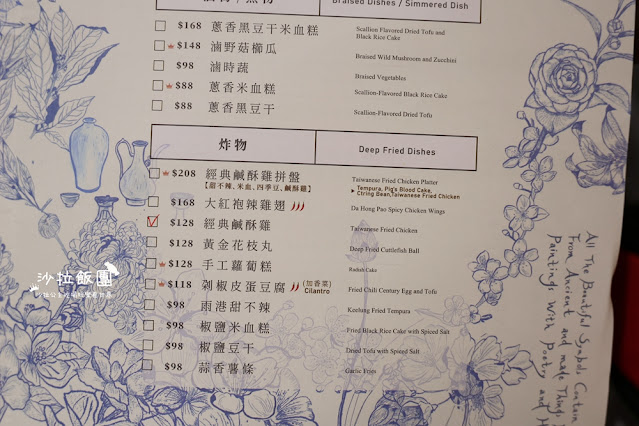 Braised Dishes / Simmered Dish
$168 蔥香黑豆干米血糕 Scallion Flavored Dried Tofu and
Black Rice Cake
$148 滷野菇櫛瓜 Braised Wild Mushroom and Zucchini
$98 滷時蔬 Braised Vegetables
$88 蔥香米血糕 Scallion-Flavored Black Rice Cake
$88 蔥香黑豆干 Scallion-Flavored Dried Tofu
炸物 Deep Fried Dishes
$208 經典鹹酥雞拼盤 Taiwanese Fried Chicken Platter
【甜不辣、米血、四季豆、鹹酥雞】 Tempura, Pig's Blood Cake,
Ctring Bean,Taiwanese Fried Chicken
$168 大紅袍辣雞翅 Da Hong Pao Spicy Chicken Wings
$128 經典鹹酥雞 Taiwanese Fried Chicken
$128 黃金花枝丸 Deep Fried Cuttlefish Ball
$128 手工蘿蔔糕 Radish Cake
$118 剁椒皮蛋豆腐 (加香菜)
Cilantro Fried Chili Century Egg and Tofu
$98 雨港甜不辣 Keelung Fried Tempura
$98 椒鹽米血糕 Fried Black Rice Cake with Spiced Salt
$98 椒鹽豆干 Dried Tofu with Spiced Salt
$98 蒜香薯條 Garlic Fries
沙拉飯團
All The Beautiful Symbols Contain
From Ancient and made Things
Paintings With Poetry
and